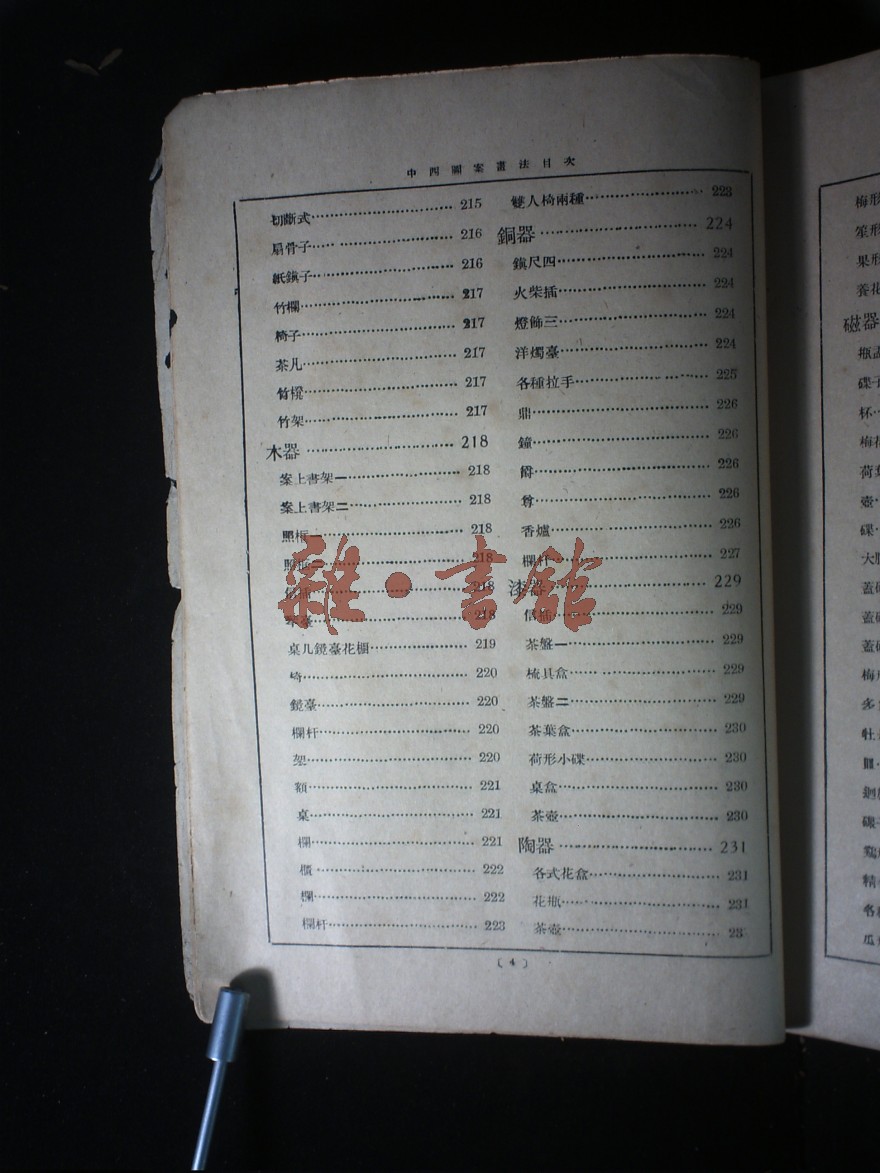 中西圖案畫法目次
切斷式 215
扇骨子 216
紙鎭子 216
竹欄 217
椅子 217
茶凡 217
竹櫈 217
竹架 217
木器 218
案上書架一 218
案上書架二 218
218
218
218
218
桌几鏡臺花棚 219
椅 220
鏡臺 220
欄杆 220
架 220
額 221
桌 221
欄 221
櫃 222
欄 222
欄杆 223
雙人椅兩種 223
銅器 224
鎭尺四 224
火柴插 224
燈飾三 224
洋燭臺 224
各種拉手 225
鼎 226
鐘 226
爵 226
尊 226
香爐 226
欄杆 227
漆器 229
信插 229
茶盤一 229
梳具盒 229
茶盤二 229
茶葉盒 230
荷形小碟 230
桌盒 230
茶壺 230
陶器 231
各式花盒 231
花瓶 231
茶壺 23
〔4〕
梅形
果形
養花
磁器
瓶
碟
杯
梅花
壺
碟
大
蓋
蓋
蓋
梅
多
牡
皿
鷄
精
各
瓜
雜·書館